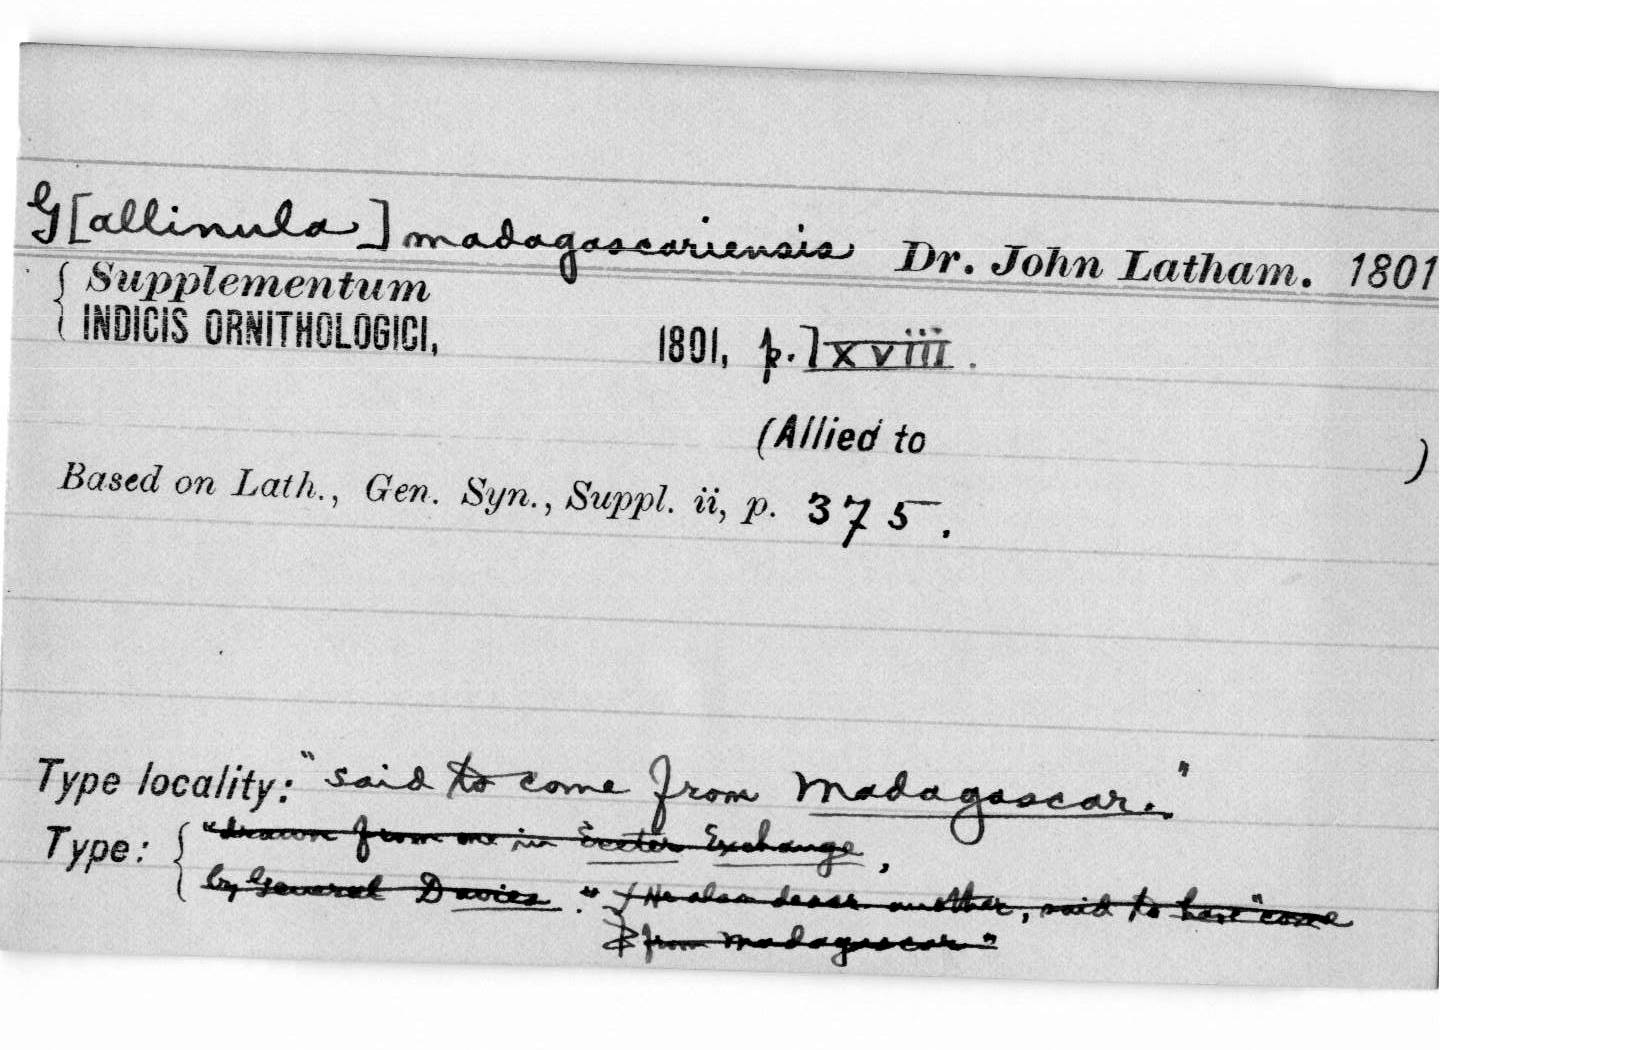 G[allinula] madagascariensis Dr. John Latham. 1801
{ Supplementum
INDICIS ORNITHOLOGICI, 1801, p. lxviii.
(Allied to )
Based on Lath., Gen. Syn., Suppl. ii, p. 375.
Type locality: "said to come from Madagascar."
Type: { "drawn from one in Exeter Exchange,
by General Davies." He also descr. another, said to have "come
from Madagascar"